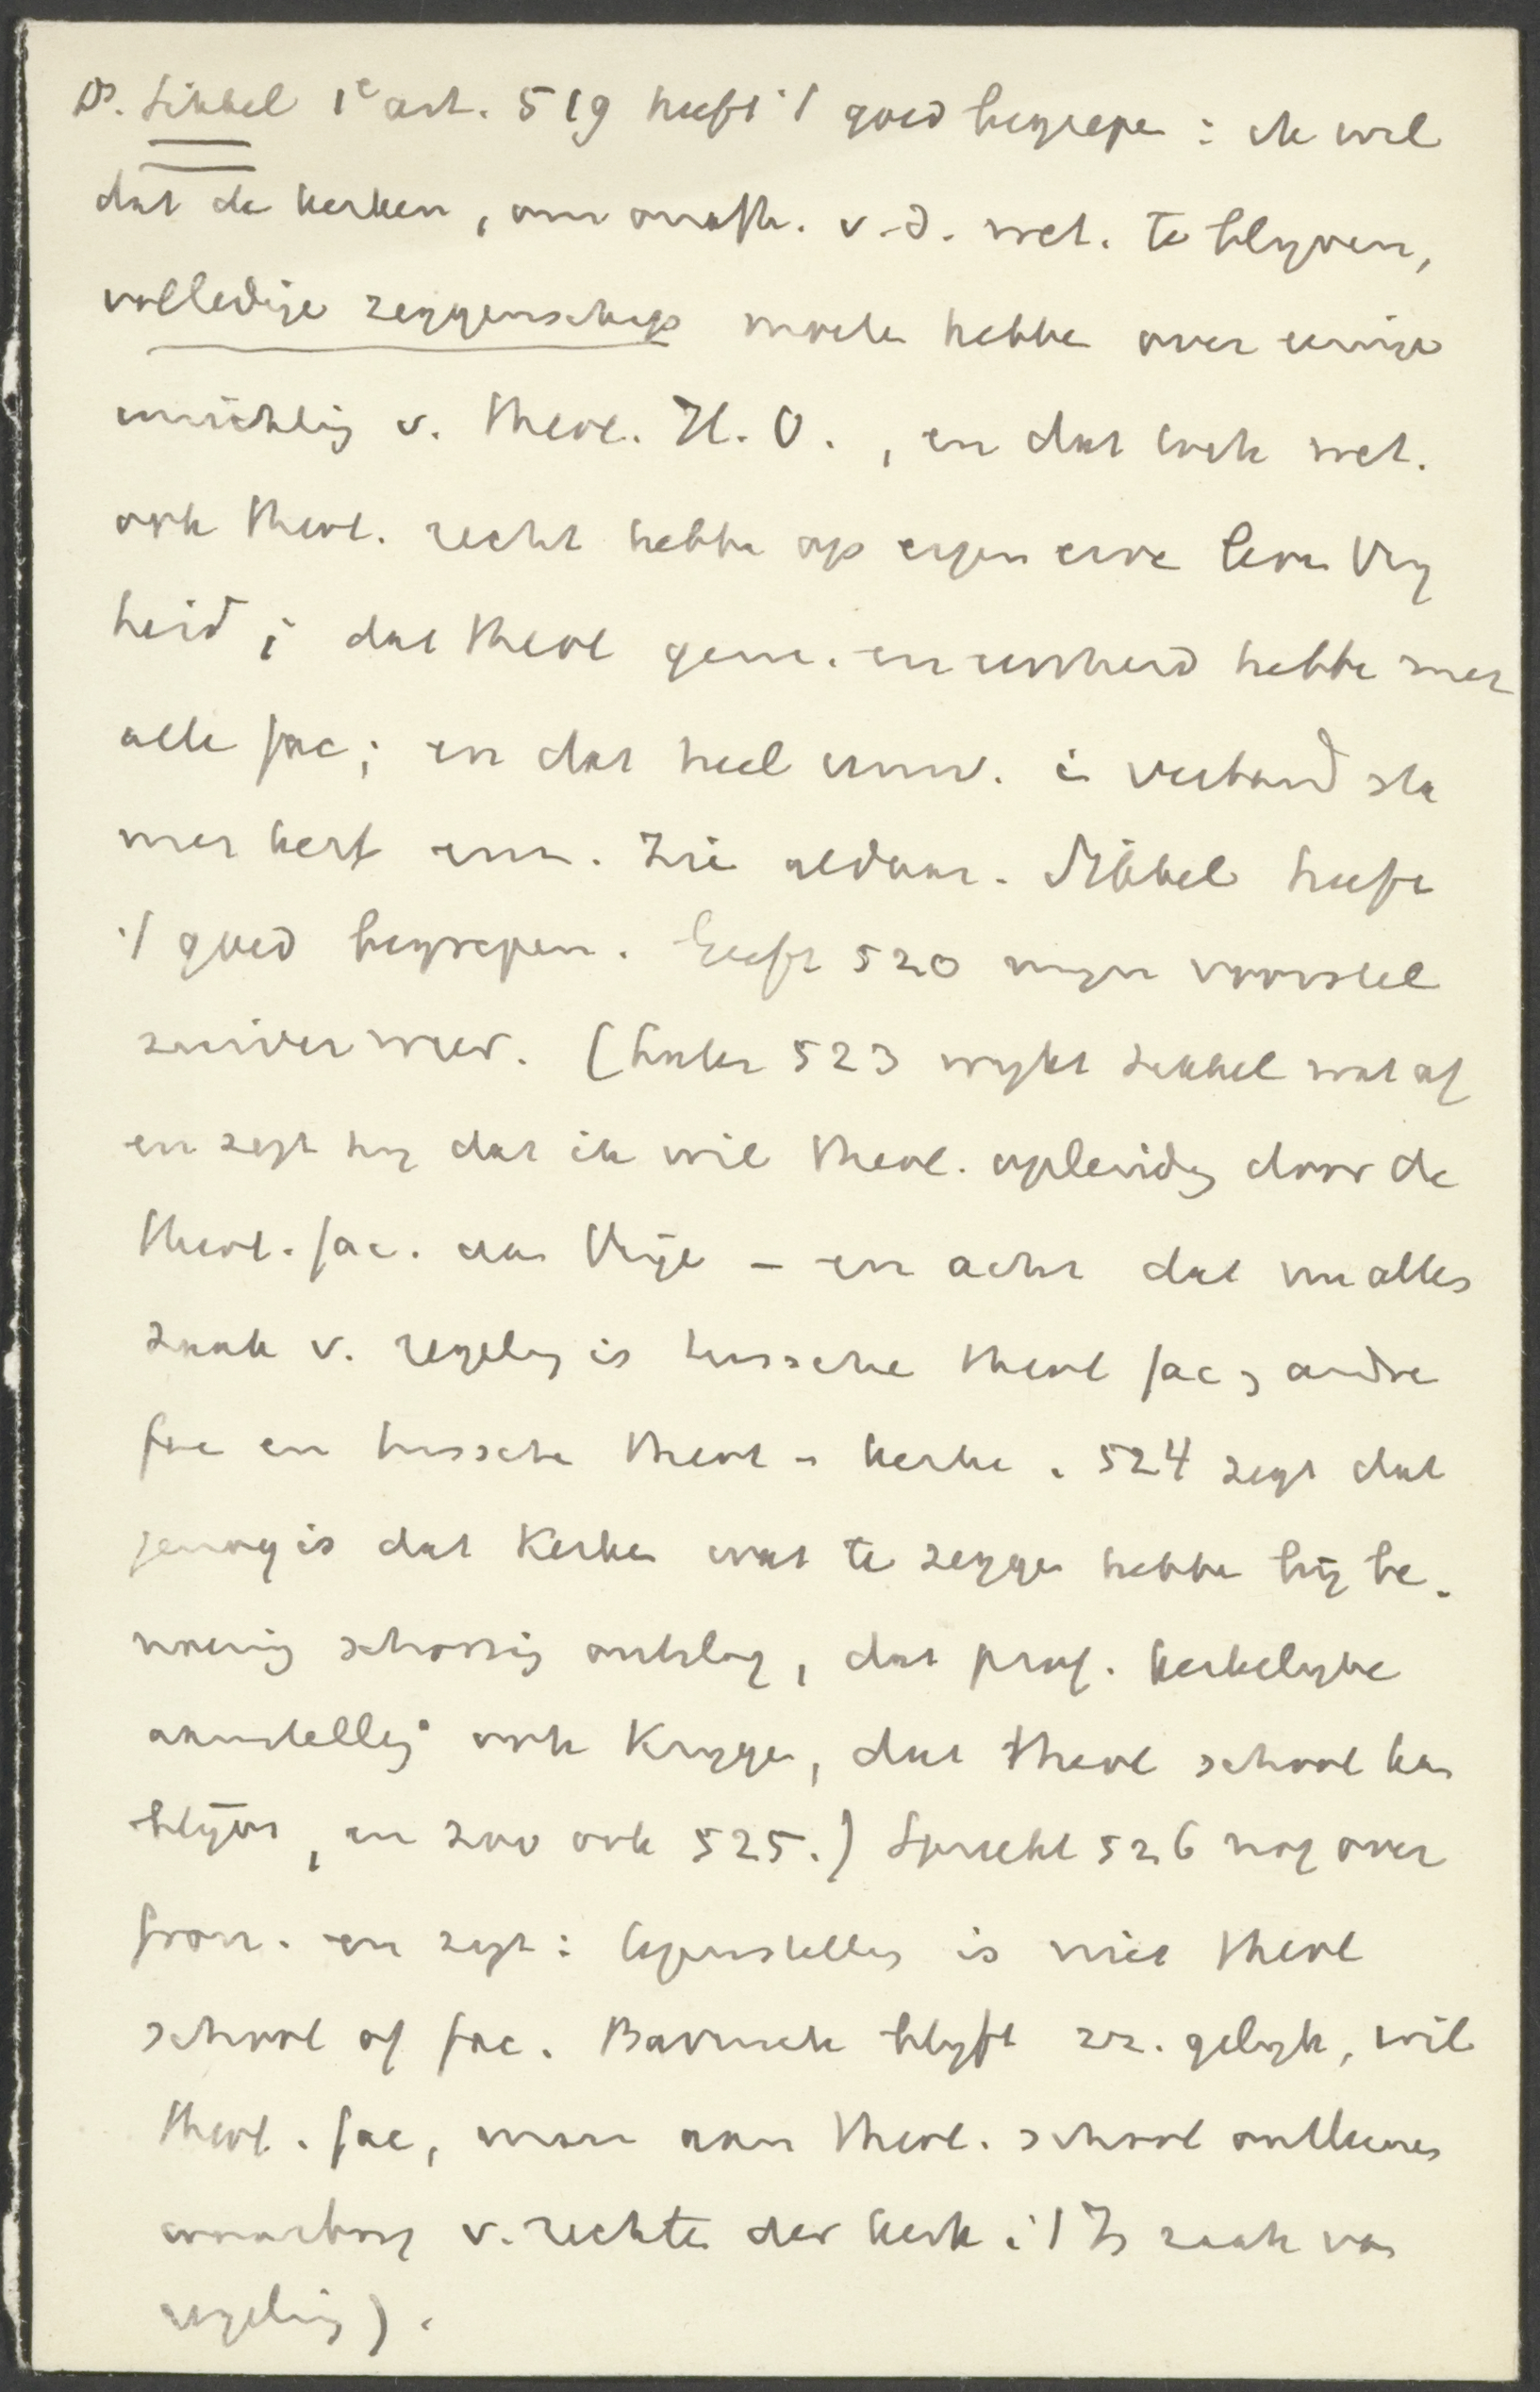 Ds. Sikkel 1e art. 519 heeft 't goed begrepen: ik wil
dat de kerken, om onafh. v.d. wet. te blyven,
volledige zeggenschap moete hebbe over eenige
inrichting v. theol. H.O., en dat toch wet.
ook theol. recht hebbe op eigen erve leve Vry
heid; dat theol gem. en eenheid hebbe met
alle fac; en dat heel univ. i verband sta
met kerk enz. Zie aldaar. Sikkel heeft
't goed begrepen. Geeft 520 myn voorstel
zuiver weer. (Later 523 wykt Sikkel wat af
en zegt hy dat ik wil theol. opleidg door de
theol. fac. aan Vrije – en acht dat nu alles
zaak v. regeling is tussche theol fac, andre
fac en tussche theol - kerke. 524 zegt dat
genoeg is dat Kerken wat te zegge hebbe bij be-
noeming schorsing ontslag, dat prof. kerkelyke
aanstelling ook krygen, dat theol school kan
blijve, en zoo ook 525.) Spreekt 526 nog over
en zegt: tegenstelling is niet theol
school of fac. Bavinck blyft zz. gelyk, wil
theol. fac, maar aan theol. school ontleenen
waarborg v. rechten der kerk; 't Is zaak van
regeling).